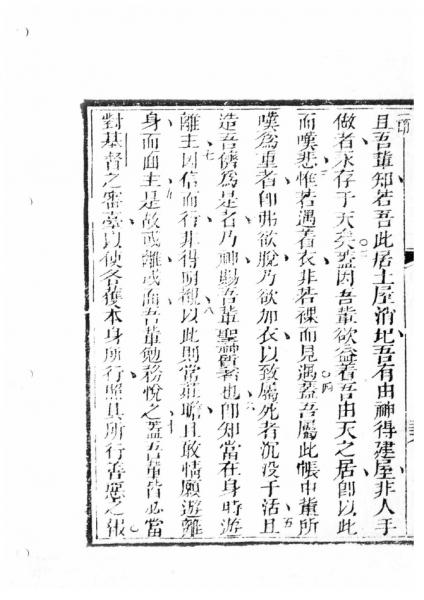 且吾輩知若吾此居土屋消圮吾有由神得建屋非人手
做者永存于天矣蓋因吾輩欲益着吾由天之居即以此
而嘆悲惟若遇着衣非若裸而見遇蓋吾屬此帳中輩所
嘆為重者即弗欲脫乃欲加衣以致屬死者沉没于活且
造吾儕為是者乃神賜吾輩聖神質者也即知當在身時游
離主因信而行非得明
以此則當
膽且敢情願遊離
身而面主是故或離或面吾輩勉務悅之蓋吾輩皆必當
對基督之審臺以使各獲本身所行照其所行善惡之報